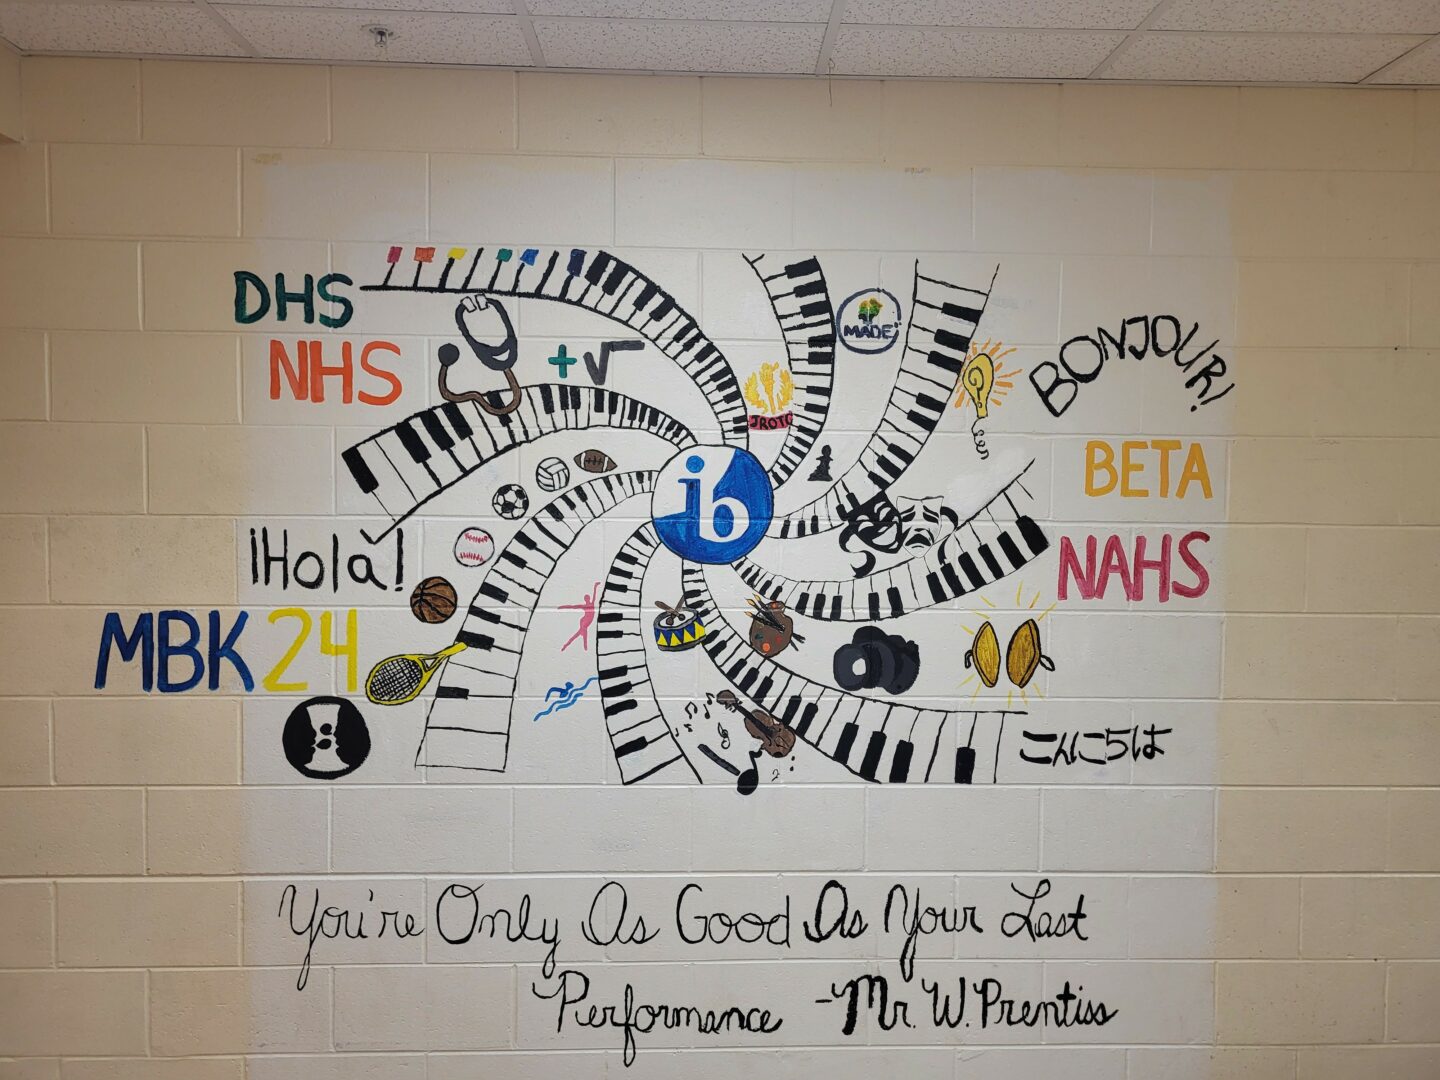 DHS
NHS
MADE
JROTC
BONJOUR!
BETA
ib
¡Holà!
NAHS
MBK 24
こんにちは
You're Only As Good As Your Last
Performance -Mr. W. Prentiss